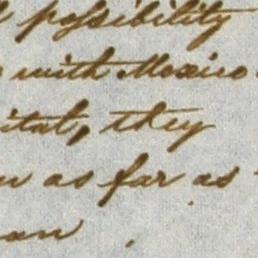 possibility
with Mexico
ital, they
as far as